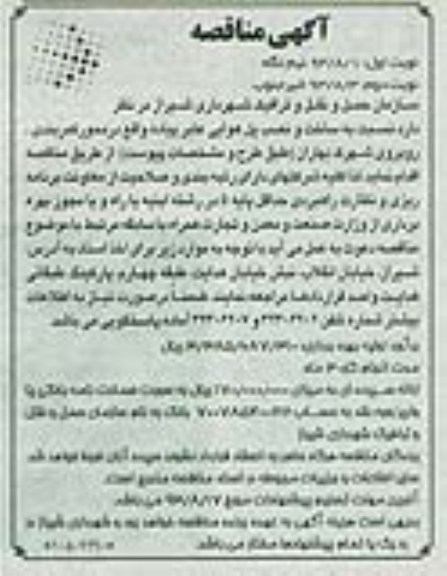 آگهی مناقصه
نوبت اول: ۹۳/۸/۱ نیم نگاه
نوبت دوم: ۹۳/۸/۳ خبر جنوب
سازمان حمل و نقل و ترافیک شهرداری شیراز در نظر
دارد نسبت به ساخت و نصب پل هوایی عابر پیاده واقع در محور کمربندی
روبروی شهرک بهاران (طبق طرح و مشخصات پیوست) از طریق مناقصه
اقدام نماید لذا کلیه شرکتهای دارای رتبه بندی و صلاحیت از معاونت برنامه
ریزی و نظارت راهبردی حداقل پایه ۵ در رشته ابنیه یا راه و یا مجوز بهره
برداری از وزارت صنعت و معدن و تجارت همراه با سابقه مرتبط با موضوع
مناقصه دعوت به عمل می آید با توجه به موارد زیر برای اخذ اسناد به آدرس
شیراز، خیابان انقلاب نبش خیابان هدایت طبقه چهارم پارکینگ طبقاتی
هدایت واحد قراردادها مراجعه نمایند ضمناً درصورت نیاز به اطلاعات
بیشتر شماره تلفن و آماده پاسخگویی می باشد
برآورد اولیه پروژه ریال
مدت انجام کار ۳ ماه
ارائه سپرده ای به میزان ریال به صورت ضمانت نامه بانکی یا
واریز وجه نقد به حساب بانک به نام سازمان حمل و نقل
و ترافیک شهرداری شیراز
برندگان مناقصه هرگاه حاضر به انعقاد قرارداد نشوند سپرده آنان ضبط خواهد شد
سایر اطلاعات و جزئیات مربوطه در اسناد مناقصه مندرج است.
آخرین مهلت تسلیم پیشنهادات مورخ ۹۳/۸/۱۷ می باشد.
بدیهی است هزینه آگهی به عهده برنده مناقصه خواهد بود و شهرداری شیراز در
رد یک یا تمام پیشنهادها مختار می باشد.